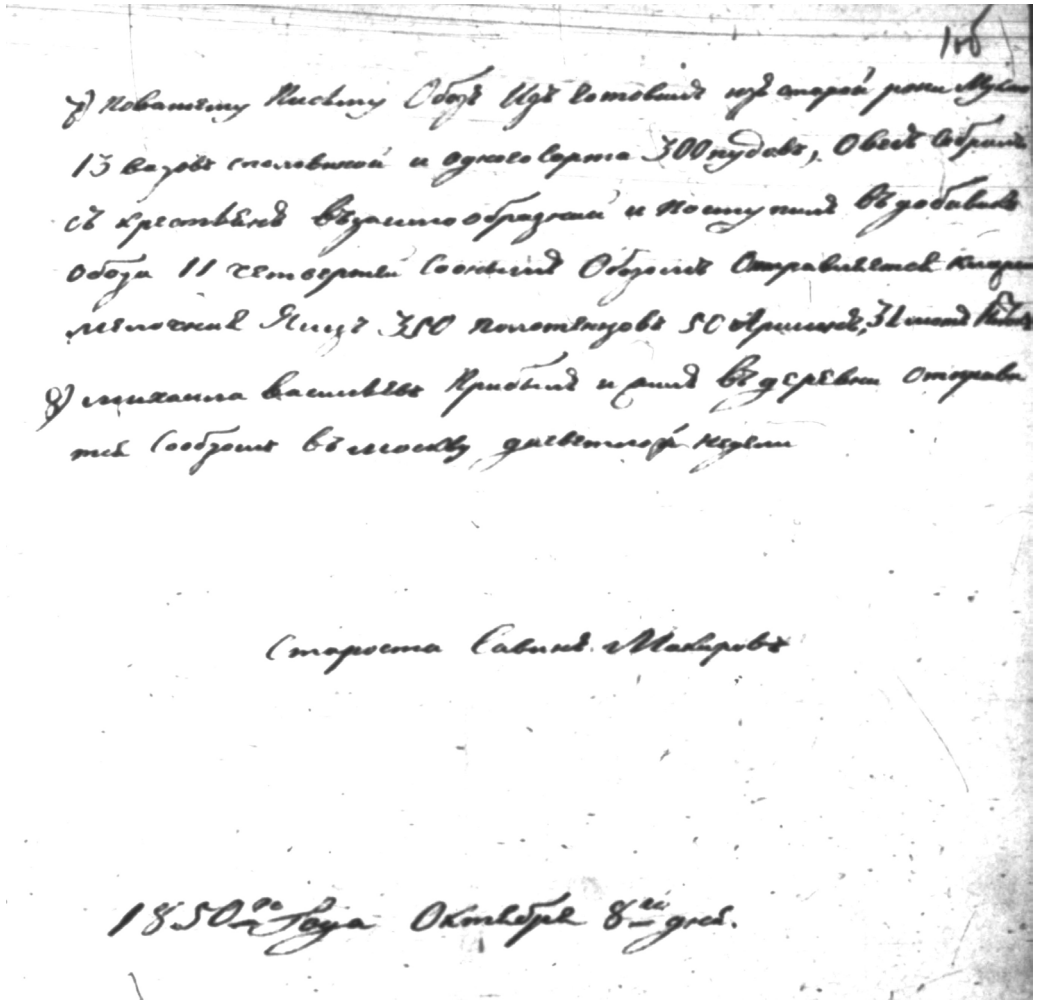 7) Повашему Письму Обозъ Изъ Готовыхъ изъ старой ржи Муки
13 возовъ споловиной и одного сорта 300 пудовъ, Овесъ собранъ
съ крестьянъ взаимообразный и поступилъ въ добавокъ
обоза 11 четвертей Соонымъ Обозомъ Отправляется
мелочная Яицъ 350 полотенцовъ 50 Аршинъ,
8) михаила васильевъ Прибылъ и въ деревни отправи
тся Собозомъ въ москву недели
Староста Савинъ Макаровъ
1850го Года Октября 8го дня.